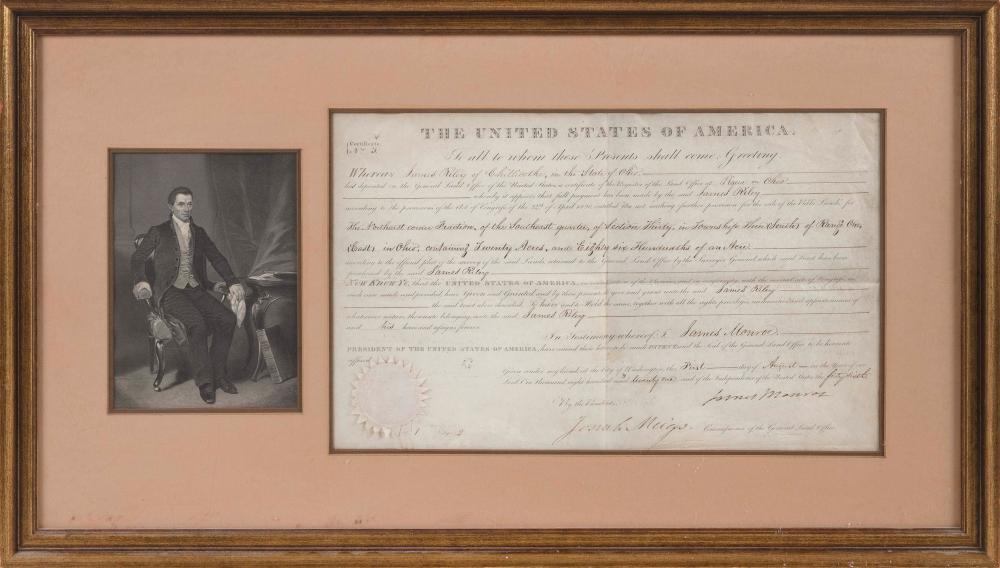 THE UNITED STATES OF AMERICA.
Certificate
No. 5.
To all to whom these Presents shall come, Greeting
Whereas James Riley of Chillicothe, in the State of Ohio
has deposited in the General Land Office of the United States, a certificate of the Register of the Land Office at Piqua in Ohio
whereby it appears that full payment has been made by the said James Riley
according to the provisions of the Act of Congress of the 24th of April 1820, entitled An act making further provision for the sale of the Public Lands, for
The Northeast corner Fraction, of the Southeast quarter, of Section Thirty, in Township Three South, of Range One,
East, in Ohio, containing Twenty Acres, and Eighty six Hundredths of an Acre
according to the official plat of the survey of the said Lands, returned to the General Land Office by the Surveyor General, which said Tract has been
purchased by the said James Riley
NOW KNOW YE, that the UNITED STATES OF AMERICA, in consideration of the Premises, and in conformity with the several acts of Congress, in
such case made and provided, have Given and Granted, and by these presents do give and grant unto the said James Riley
the said tract above described: To have and to Hold the same, together with all the rights, privileges, immunities and appurtenances of
whatsoever nature, thereunto belonging, unto the said James Riley
and his heirs and assigns forever.
In Testimony whereof I, James Monroe
PRESIDENT OF THE UNITED STATES OF AMERICA, have caused these letters to be made PATENT, and the Seal of the General Land Office to be hereunto
affixed.
Given under my hand at the City of Washington, the First day of August in the Year of our
Lord One thousand eight hundred and twenty one and of the Independence of the United States the forty sixth
By the President, James Monroe
Josiah Meigs Commissioner of the General Land Office